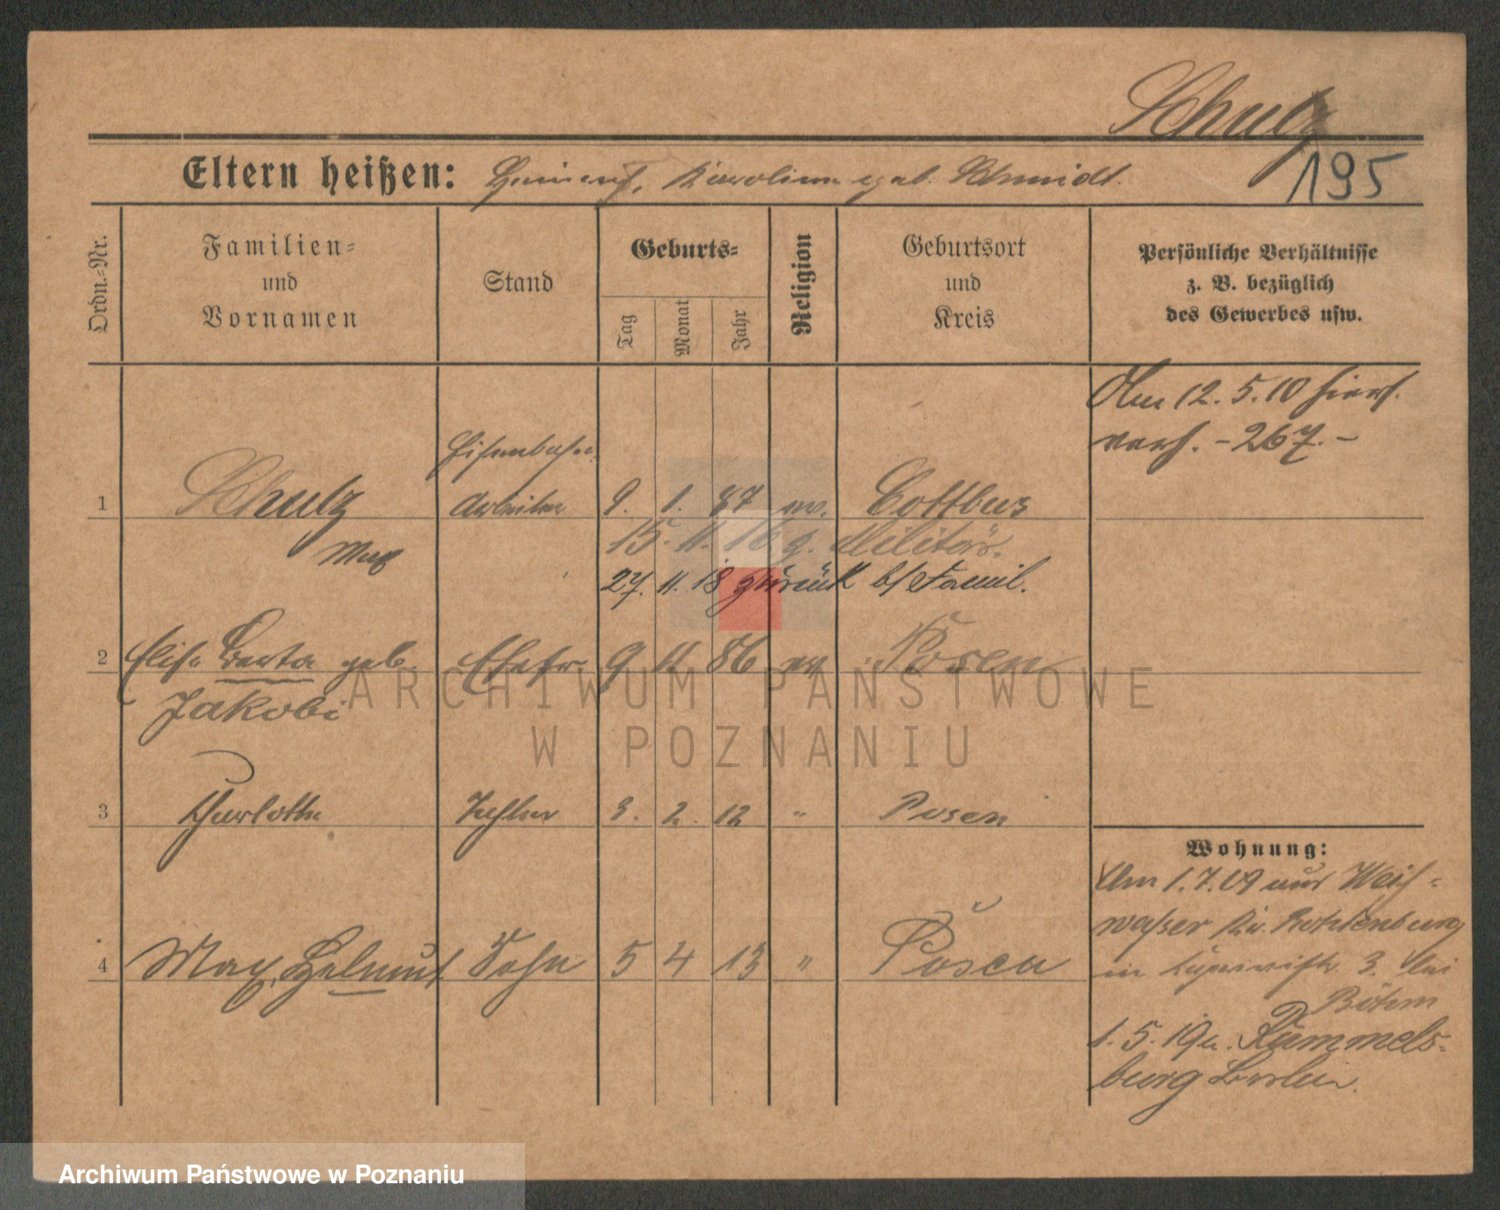 Schulz
195
Eltern heißen: Heinrich, Karoline geb. Schmidt.
Ordn.-Nr.
Familien-
und
Vornamen
Stand
Geburts-
Tag
Monat
Jahr
Religion
Geburtsort
und
Kreis
Persönliche Verhältnisse
z. B. bezüglich
des Gewerbes usw.
Am 12. 5. 10 hier
verh. - 267. -
Eisenbahn
1 Schulz Arbeiter 9. 1. 87 ev. Cottbus
Max
15. 11. 16 z. Militär.
27. 11. 18 zurück b/ Famil.
2 Elise Berta geb. Ehefr. 9 11 86 ev Posen
Jakobi
3 Charlotte Tochter 3. 2. 12 " Posen
4 Max, Helmut Sohn 5 4 13 " Posen
Wohnung:
Am 1. 7. 09 aus Weiß-
wasser Kr. Rothenburg
in 3. bei
Böhm
1. 5. 19 n. Rummels-
burg Berlin.
ARCHIWUM PAŃSTWOWE
W POZNANIU
Archiwum Państwowe w Poznaniu